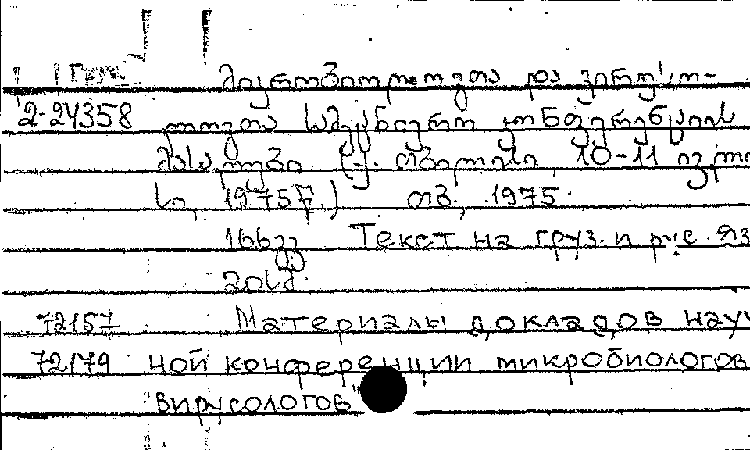 მიკრობიოლოგთა და ვირუსო-
2-24358 ლოგთა სამეცნიერო კონფერენციის
მასალები (ქ. თბილისი, 10-11 ივლი
სი, 1975წ.) თბ., 1975.
166გვ. Текст на груз. и рус. яз
72157 Материалы докладов науч
72179 ной конференции микробиологов
вирусологов